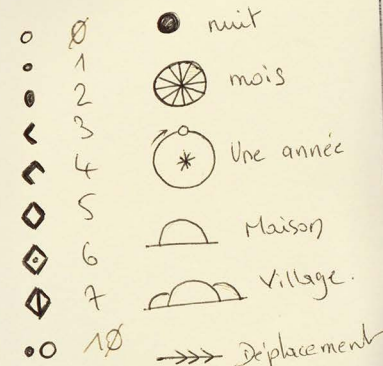 Ø
1
2
3
4
5
6
7
1Ø
nuit
mois
Une année
Maison
Village.
Déplacement